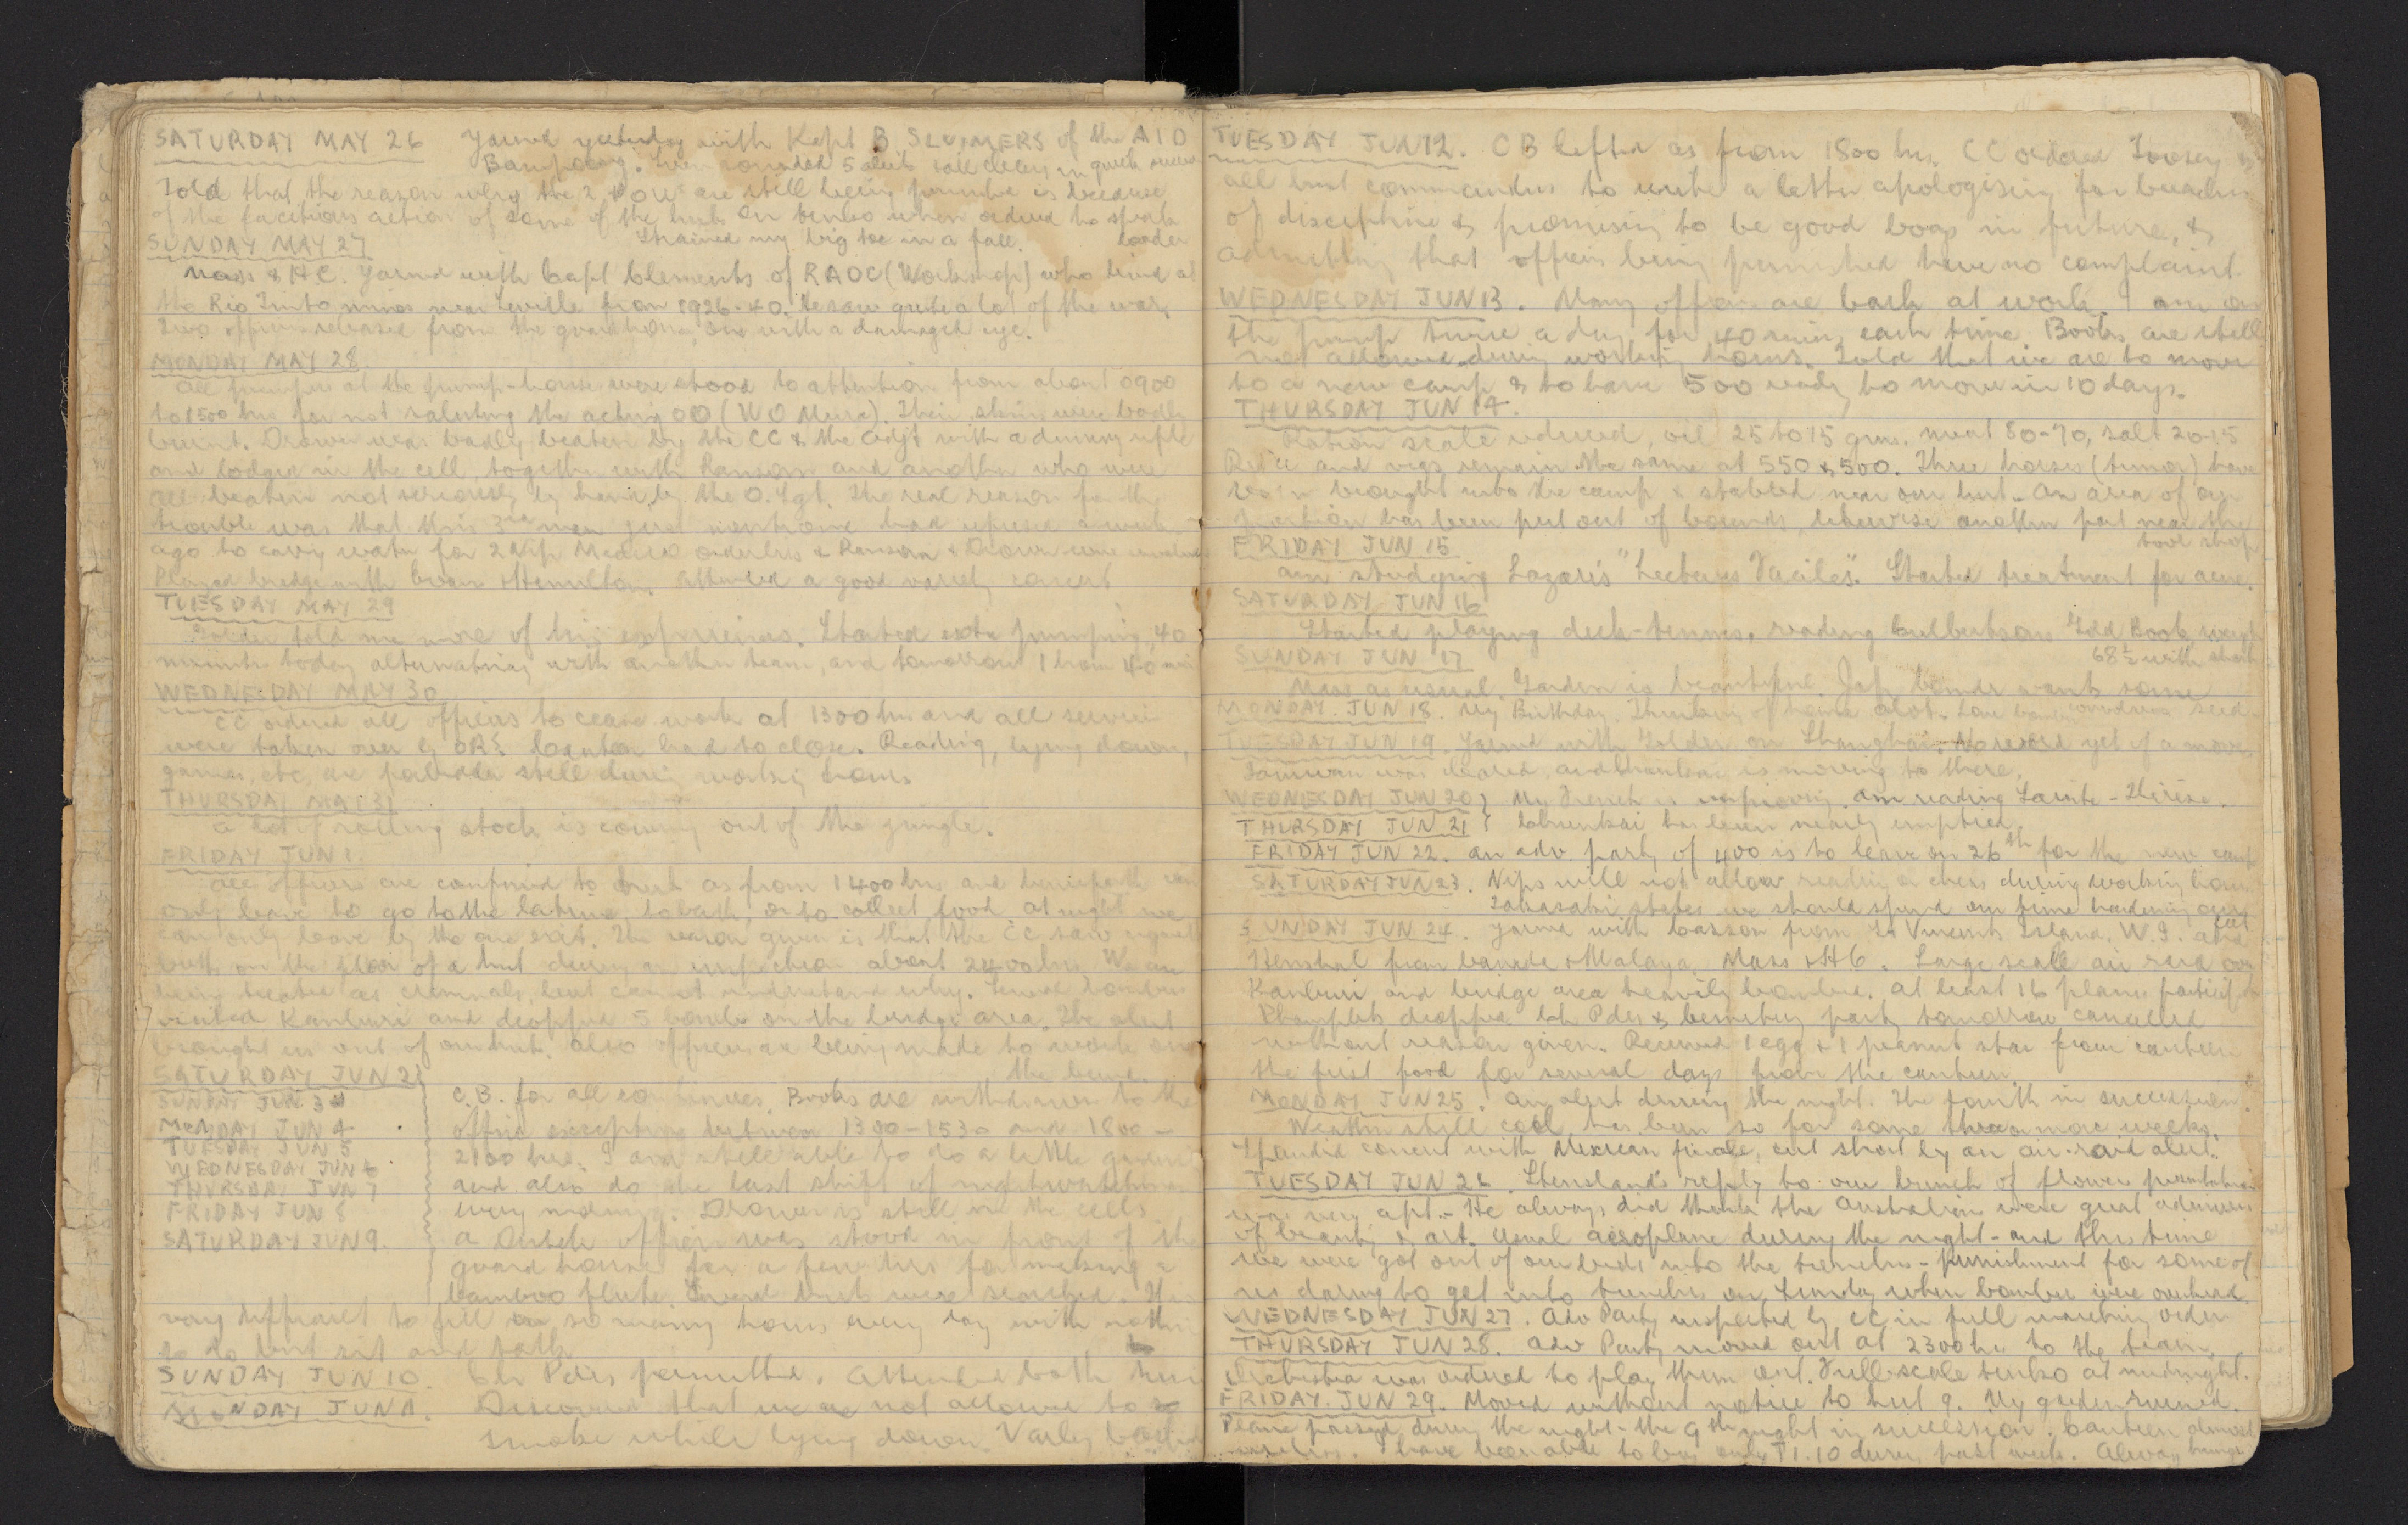 SATURDAY MAY 26 Yarned yesterday with Kapt B. SLUMERS of the AID
Bampong. Siren sounded 5 alerts & all clears in quick
Told that the reason why the 2 POWs are still being punished is because
of the facetious action of some of the huts on tenko when ordered to speak
SUNDAY MAY 27 Strained my big toe in a fall. louder
Mass & H.C. Yarned with Capt Clements of RAOC (Workshop) who lived at
the Rio Tinto mines near Seville from 1926-40. He saw quite a lot of the war.
Two officers released from the guardhouse, one with a damaged eye.
MONDAY MAY 28.
All pumpers at the pump-house were stood to attention from about 0900
to 1500 hrs for not saluting the acting OO (WO Meura). Their skins were badly
burnt. Drower was badly beaten by the CC & the Adjt with a dummy rifle
and lodged in the cell, together with Ranson and another who were
all beaten not seriously by hand by the O. Sgt. The real reason for the
trouble was that this 3rd man just mentioned had refused a week
ago to carry water for 2 Nip Medico orderlies & Ranson & Drower were involved
Played bridge with & Hamilton. Attended a good variety concert
TUESDAY MAY 29
Golder told me more of his experiences. Started extra pumping, 40
minutes today alternating with another team, and tomorrow 1 hour 40 min
WEDNESDAY MAY 30
CC ordered all officers to cease work at 1300 hrs and all services
were taken over by ORs. Canteen had to close. Reading, lying down,
games, etc, are forbidden still during working hours.
THURSDAY MAY 31
A lot of rolling stock is coming out of the jungle.
FRIDAY JUN 1.
All officers are confined to huts as from 1400 hrs and henceforth can
only leave to go to the latrine, to bath, or to collect food. At night we
can only leave by the one exit. The reason given is that the CC saw cigarette
butts on the floor of a hut during an inspection about 2400 hrs. We are
being treated as criminals, but cannot understand why. Several bombers
visited Kanburi and dropped 5 bombs on the bridge area. The alert
brought us out of our huts. Also officers are being made to work on
SATURDAY JUN 2 the bund.
SUNDAY JUN 3 C.B. for all continues. Books are withdrawn to the
MONDAY JUN 4 office excepting between 1300-1530 and 1800-
TUESDAY JUN 5 2100 hrs. I am still able to do a little gardening
WEDNESDAY JUN 6 and also do the last shift of nightwatchman
THURSDAY JUN 7
FRIDAY JUN 8 every morning. Drower is still in the cells.
SATURDAY JUN 9. A Dutch officer was stood in front of the
guard house for a few hrs for making a
bamboo flute. Several huts were searched. It is
very difficult to fill in so many hours every day with nothing
to do but sit and talk
SUNDAY JUN 10. Ch Pdes permitted. Attended both
MONDAY JUN 11. Discovered that we are not allowed to
smoke while lying down. Varley
TUESDAY JUN 12. CB lifted as from 1800 hrs. CC ordered Toosey &
all hut commanders to write a letter apologising for breaches
of discipline & promising to be good boys in future, &
admitting that officers being punished have no complaint.
WEDNESDAY JUN 13. Many officers are back at work. I am on
the pump twice a day for 40 mins each time. Books are still
not allowed during working hours. Told that we are to move
to a new camp & to have 500 ready to move in 10 days.
THURSDAY JUN 14.
Ration scale reduced, oil 25 to 15 gms. meat 80-70, salt 20-15
Rice and vegs remain the same at 550 & 500. Three horses have
been brought into the camp & stabled near our hut. An area of our
portion has been put out of bounds, likewise another part near the
FRIDAY JUN 15 tool shop
Am studying Lazare's "Lectures Faciles". Started treatment for acne.
SATURDAY JUN 16
Started playing deck-tennis, reading Culbertson's Gold Book, weigh
SUNDAY JUN 17 68½ with shorts
Mass as usual. Garden is beautiful. Jap wants some
MONDAY. JUN 18. My Birthday. Thinking of home a lot. seed.
TUESDAY JUN 19. Yarned with Golder on Shanghai. No record yet of a move.
Tamuan was cleared, and Chunkai is moving to there.
WEDNESDAY JUN 20 } My French is improving. Am reading Sainte-Thérèse.
THURSDAY JUN 21 } Chunkai has been nearly emptied.
FRIDAY JUN 22. An adv. party of 400 is to leave on 26th for the new camp
SATURDAY JUN 23. Nips will not allow reading or chess during working hours
Takasaki states we should spend our time hardening our
SUNDAY JUN 24. Yarned with Casson from St Vincents Island, W.I. and feet
Henshal from Canada & Malaya. Mass & HC. Large scale air raid over
Kanburi and bridge area heavily bombed. At least 16 planes
Pamphlets dropped. Ch Pdes & Cemetery party tomorrow cancelled
without reason given. Received 1 egg & 1 peanut star from canteen
the first food for several days from the canteen.
MONDAY JUN 25. An alert during the night. The fourth in succession.
Weather still cool, has been so for some three or more weeks.
Splendid concert with Mexican finale, cut short by an air-raid alert.
TUESDAY JUN 26. Stensland's reply to our bunch of flowers presentation
was very apt - He always did think the Australians were great admirers
of beauty & art. Usual aeroplane during the night - and this time
we were got out of our beds into the trenches - punishment for some of
us daring to get into trenches on Sunday when bombers were overhead.
WEDNESDAY JUN 27. Adv Party inspected by CC in full marching order
THURSDAY JUN 28. Adv Party moved out at 2300 hrs to the train.
Orchestra was ordered to play them out. Full-scale tenko at midnight.
FRIDAY. JUN 29. Moved without notice to hut 9. My garden ruined.
Plane passed during the night - the 9th night in succession. Canteen almost
I have been able to buy only T1.10 during past week. Always hungry